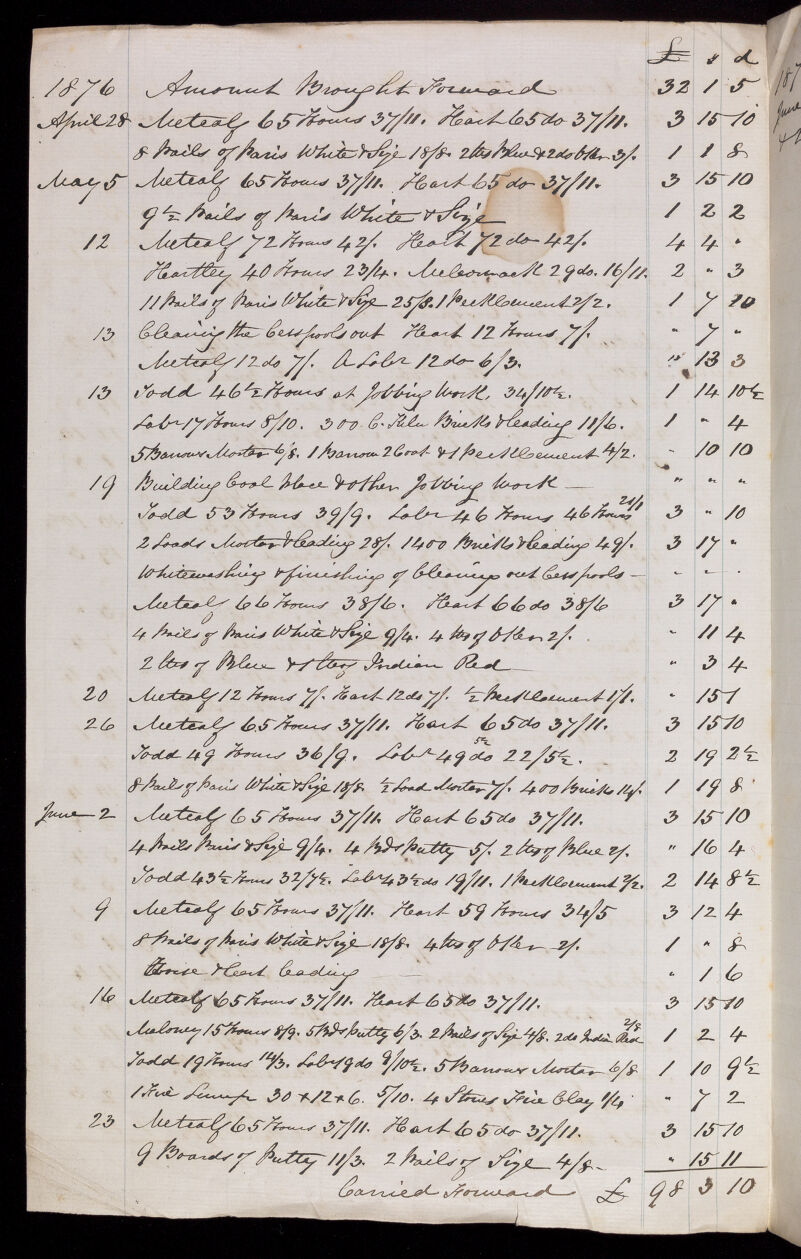 £ s d
1876 Amount Brought Forward 32 1 5
April 28 Metcalf 65 Hours 37/11. Hart 65 do 37/11. 3 15 10
8 Pails of Paris White & Size 18/8. 2 lbs Blue & 2 do Oker 3/. 1 1 8
May 5 Metcalf 65 Hours 37/11. Hart 65 do 37/11. 3 15 10
9½ Pails of Paris White & Size 1 2 2
12 Metcalf 72 Hours 42/. Hart 72 do 42/. 4 4 "
Hartley 40 Hours 23/4. McCormack 29 do. 16/11. 2 " 3
11 Pails of Paris White & Size 25/8. 1 Peck Cement 2/2. 1 7 10
13 Cleaning the Cesspools out Hart 12 Hours 7/. " 7 "
Metcalf 12 do 7/. A Labr 12 do 6/3. " 13 3
13 Todd 46½ Hours at Jobbing Work. 34/10½. 1 14 10½
Labr 17 Hours 8/10. 300 C. Kiln Bricks & leading 11/6. 1 " 4
5 Barrows Mortar 6/8. 1 Barrow 2 Coat & 1 Peck Cement 4/2. " 10 10
19 Building Coal Place & other Jobbing Work — " " "
Todd 53 Hours 39/9. Labr 46 Hours 46 Hours 21/1 3 " 10
2 Loads Mortar & leading 28/. 1400 Bricks & leading 49/. 3 17 "
Whitewashing & finishing of Cleaning out Cesspools — - - .
Metcalf 66 Hours 38/6. Hart 66 do 38/6 3 17 "
4 Pails of Paris White & Size 9/4. 4 lbs of Oker 2/. " 11 4
2 lbs of Blue & 1 lb of Indian Red " 3 4
20 Metcalf 12 Hours 7/. Hart 12 do 7/. ½ Peck Cement 1/1. " 15 1
26 Metcalf 65 Hours 37/11. Hart 65 do 37/11. 3 15 10
Todd 49 Hours 36/9. Labr 49 do 22/5½. 2 19 2½
8 Pails of Paris White & Size 18/8. ½ Load Mortar 7/. 400 Bricks 14/. 1 19 8
June 2 Metcalf 65 Hours 37/11. Hart 65 do 37/11. 3 15 10
4 Pails Paris & Size 9/4. 4 Bds Putty 5/. 2 lbs of Blue 2/. " 16 4
Todd 43½ Hours 32/7½. Labr 43½ do 19/11. 1 Peck Cement 2/2. 2 14 8½
9 Metcalf 65 Hours 37/11. Hart 59 Hours 34/5 3 12 4
8 Pails of Paris White & Size 18/8. 4 lbs of Oker 2/. 1 " 8
Horse & Cart leading " 1 6
16 Metcalf 65 Hours 37/11. Hart 65 do 37/11. 3 15 10
Maloney 15 Hours 8/9. 5 Bds Putty 6/3. 2 Pails of Size 4/8. 2 do Indian Red 2/8 1 2 4
Todd 19 Hours 14/3. Labr 19 do 9/10½. 5 Barrows Mortar 6/8 1 10 9½
1 Fire Lump 30 + 12 + 6. 5/10. 4 Stones Fire Clay 1/4 " 7 2
23 Metcalf 65 Hours 37/11. Hart 65 do 37/11. 3 15 10
9 Boards of Putty 11/3. 2 Pails of Size 4/8 - " 15 11
Carried Forward £ 98 3 10
187
June